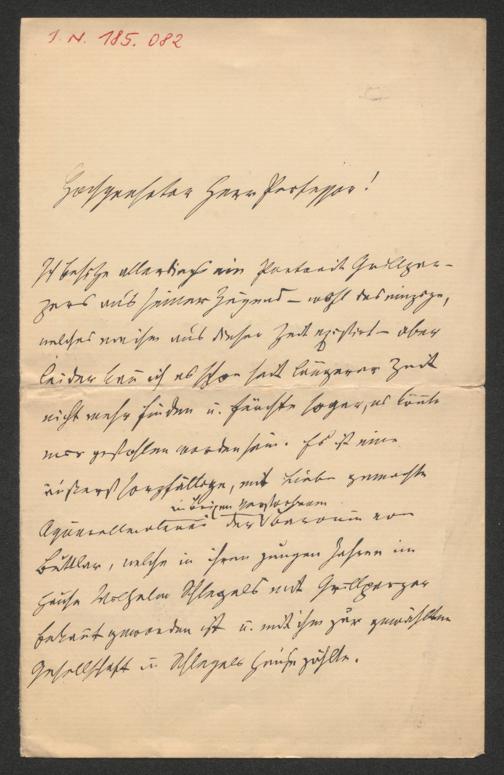 I. N. 185.082
Hochgeehrter Herr Professor!
Ich besitze allerdings ein Portrait Grillpar-
zers aus seiner Jugend – wohl das einzige,
welches von ihm aus dieser Zeit existirt – aber
leider kann ich es schon seit längerer Zeit
nicht mehr finden u. fürchte sogar, es könnte
mir gestohlen worden sein. Es ist eine
äußerst sorgfältige, mit Liebe gemachte
übrigen verstorbenen
Aquarellmalerei der Baronin von
Buttlar, welche in ihren jungen Jahren im
Hause Wilhelm Schlegels mit Grillparzer
bekannt geworden ist u. mit ihm zur gewählten
Gesellschaft in Schlegels Hause zählte.